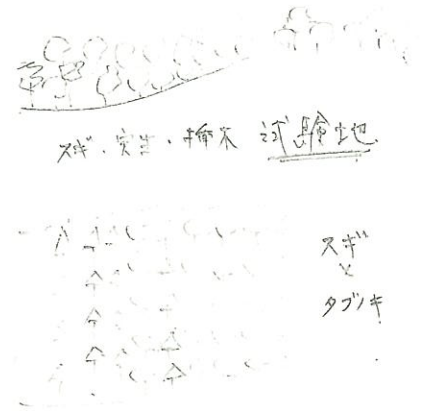 スギ・実生・挿木 試験地
スギ
と
タブノキ